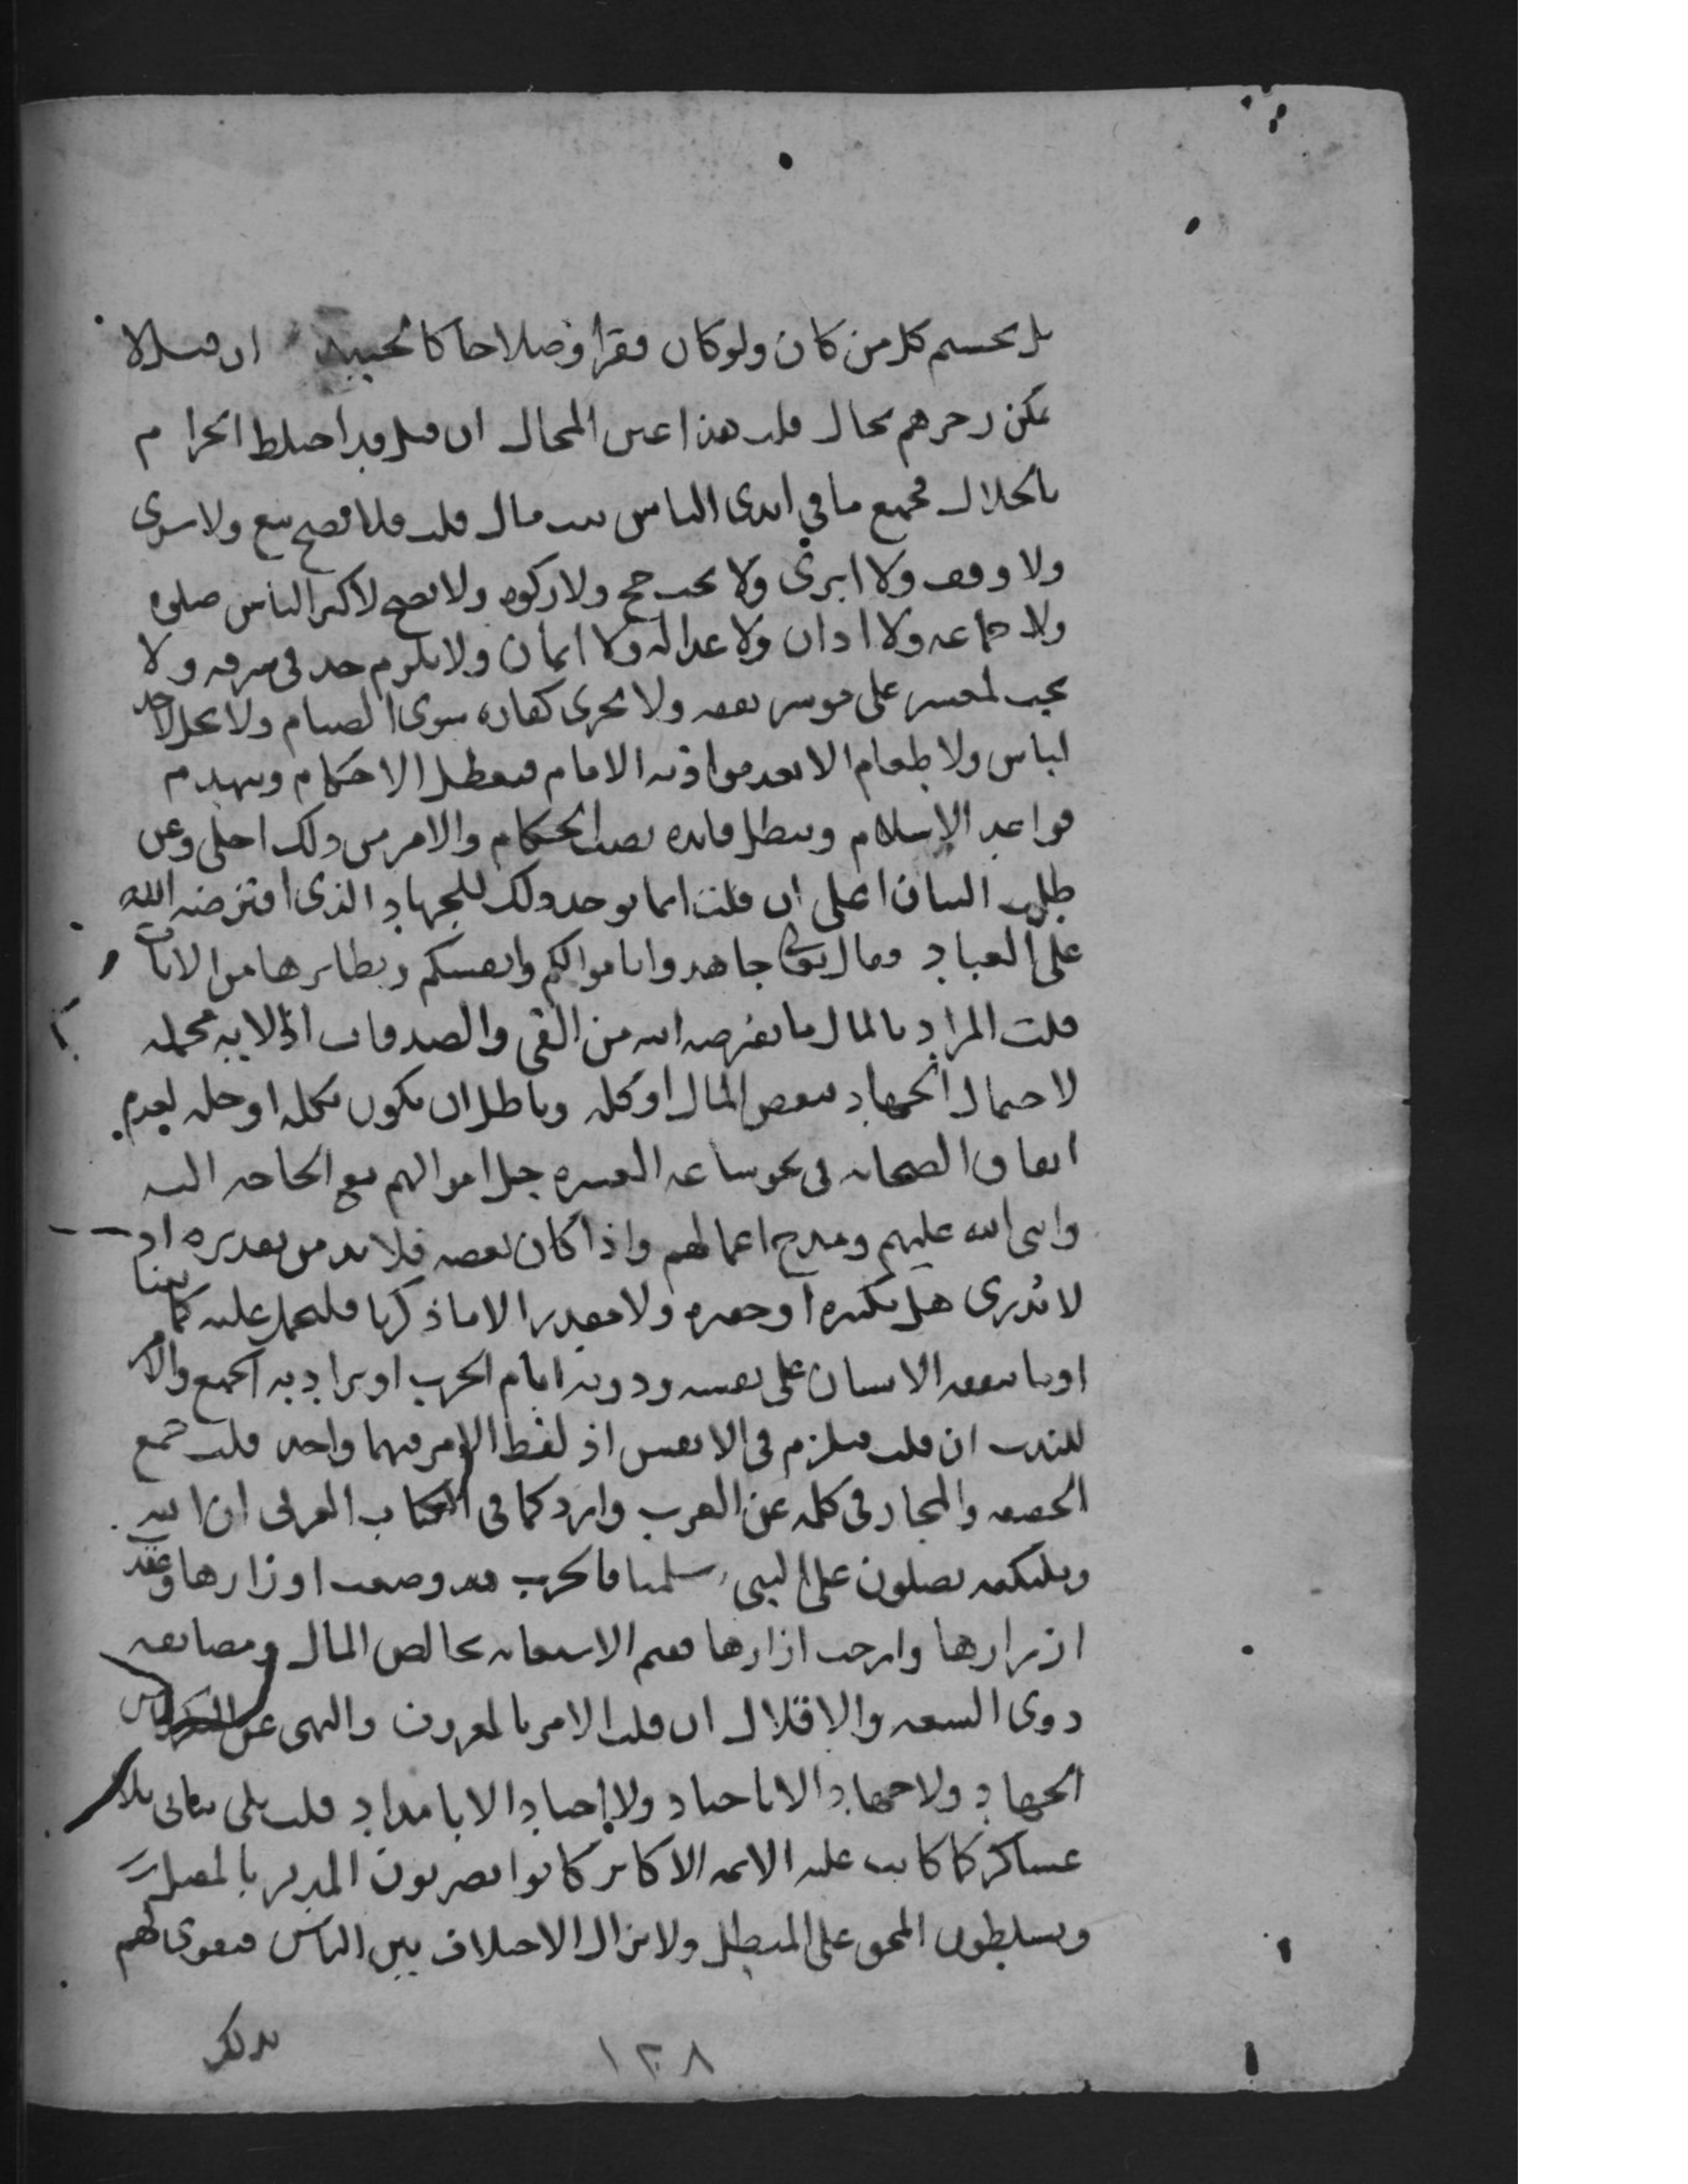 بل كل من كان ولو كان فقرا وصلاحا ان قيل لا
يمكن زجرهم بحال قلت هذا عين المحال ان قيل قد اختلط الحرام
بالحلال فجميع ما في ايدي الناس بيت مال قلت فلا يصح بيع ولا شرى
ولا وقف ولا ابرى ولا يجب حج ولا زكوه ولا يصح لاكثر الناس صلوه
ولا جماعه ولا اذان ولا عداله ولا ايمان ولا يلزم حد في سرقه ولا
يجب لمعسر على موسر نفقه ولا يجزي كفاره سوى الصيام ولا يحل لاحد
لباس ولا طعام الا بعد مواذنه الامام فيعطل الاحكام وينهدم
قواعد الاسلام ويبطل فايده نصب الحكام والامر من ذلك اجلى وعن
طلب البيان اعلى ان قلت انما يوخذ ذلك للجهاد الذي افترضه الله
على العباد وقال تعالى جاهدوا باموالكم وانفسكم ونظايرها من الايات
قلت المراد بالمال ما يفرضه الله من الفي والصدقات اذ الايه مجمله
لاحتمال الجهاد ببعض المال او كله وباطل ان يكون بكله او جله لعدم
انفاق الصحابه في نحو ساعه العسره جل اموالهم مع الحاجه اليه
واثنى الله عليهم ومدح اعمالهم واذا كان بعضه فلا بد من تقديره اذ
لا ندرى هل بكثيره او حقيره ولا مقدر الا ما ذكرنا فليحمل عليه كما بينا
او ما ينفقه الانسان على نفسه ودونه ايام الحرب او يراد به الجميع والامر
للندب ان قلت فيلزم في الانفس اذ لفظ الامر فيهما واحد قلت جمع
الحقيقه والمجاز في كلمه عن العرب وارد كما في الكتاب العربي ان الله
وملئكته يصلون على النبي سلمنا فالحرب قد وضعت اوزارها وعقد
ازرارها وارخت ازارها فعم الاستعانه بخالص المال ومضايقه
ذوي السعه والاقلال ان قلت الامر بالمعروف والنهي عن
الجهاد ولا جهاد الا باجناد ولا اجناد الا بامداد قلت بلى بلا
عساكر كما كانت عليه الائمه الاكابر كانوا يضربون المدبر بالمقبل
ويسلطون المحق على المبطل ولا يزال الاختلاف بين الناس فيقوى لهم
بذلك
١٣٨